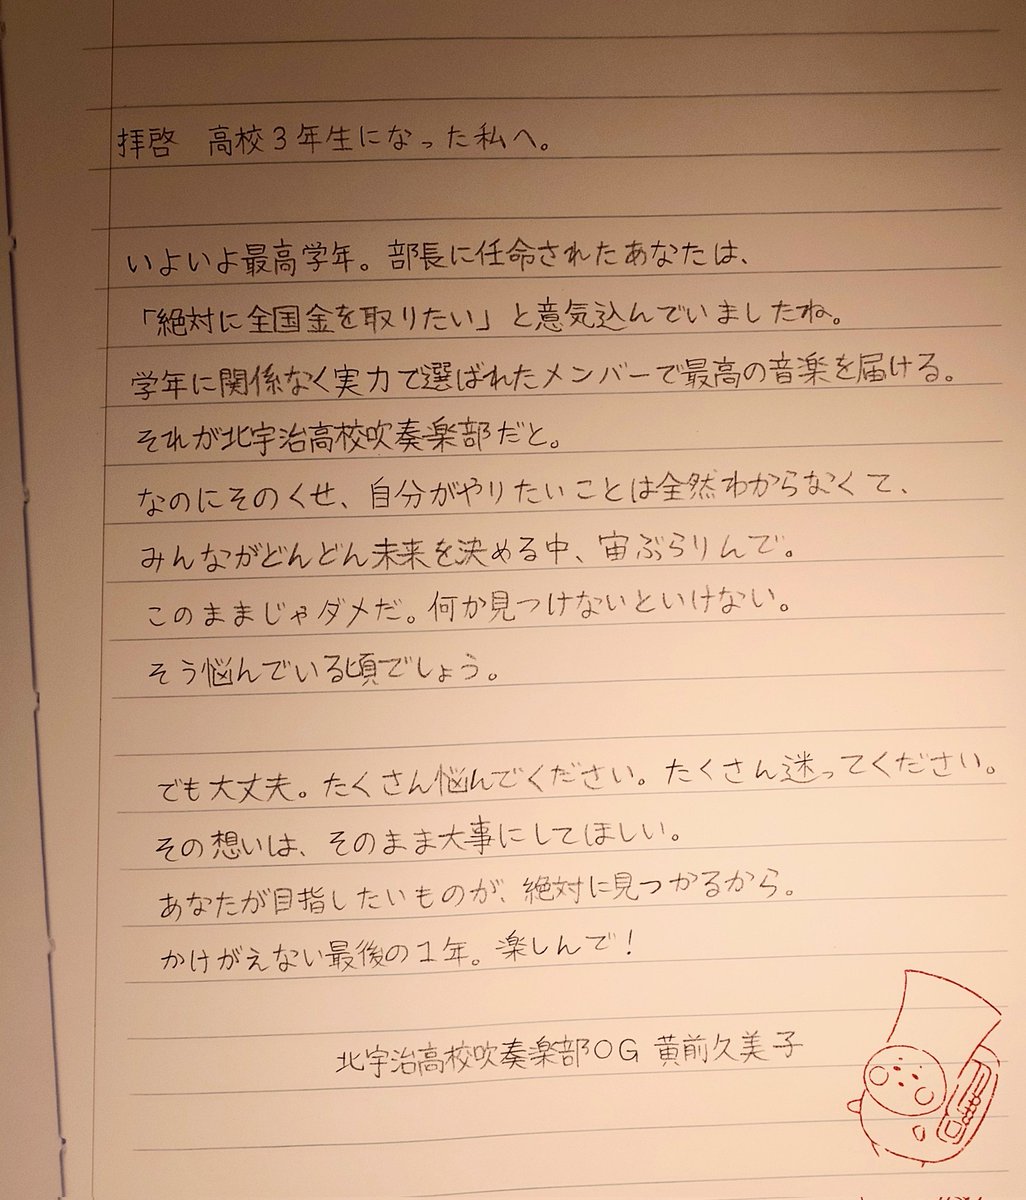 拝啓　高校３年生になった私へ。
いよいよ最高学年。部長に任命されたあなたは、
「絶対に全国金を取りたい」と意気込んでいましたね。
学年に関係なく実力で選ばれたメンバーで最高の音楽を届ける。
それが北宇治高校吹奏楽部だと。
なのにそのくせ、自分がやりたいことは全然わからなくて、
みんながどんどん未来を決める中、宙ぶらりんで。
このままじゃダメだ。何か見つけないといけない。
そう悩んでいる頃でしょう。
でも大丈夫。たくさん悩んでください。たくさん迷ってください。
その想いは、そのまま大事にしてほしい。
あなたが目指したいものが、絶対に見つかるから。
かけがえない最後の１年。楽しんで！
北宇治高校吹奏楽部ＯＧ 黄前久美子